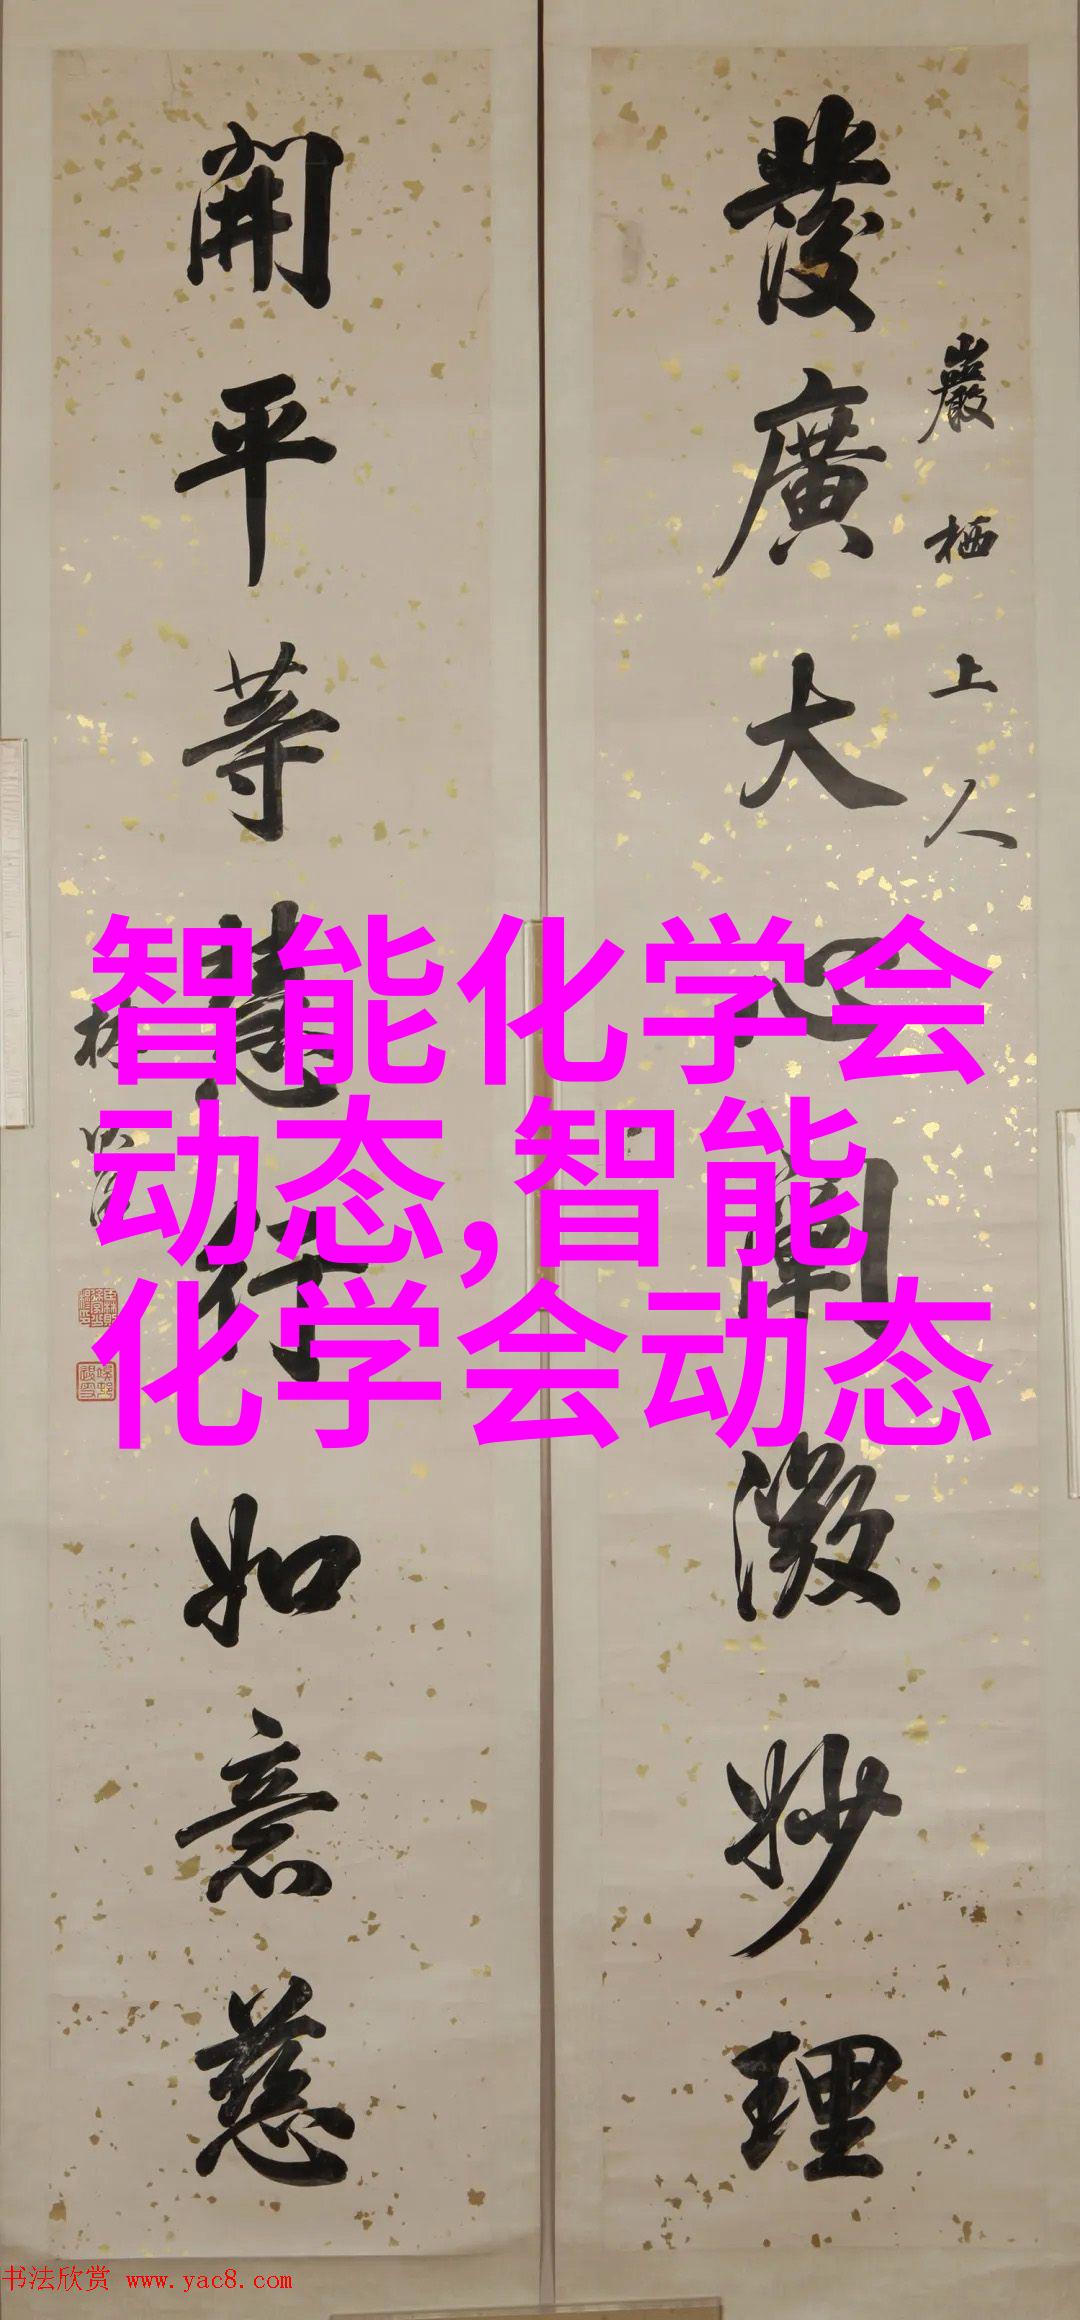 發廣大心闡微妙理
巖栖上人
開平等慧行如意慈
林
智能化学会
动态,智能
化学会动态
书法欣赏 www.yac8.com